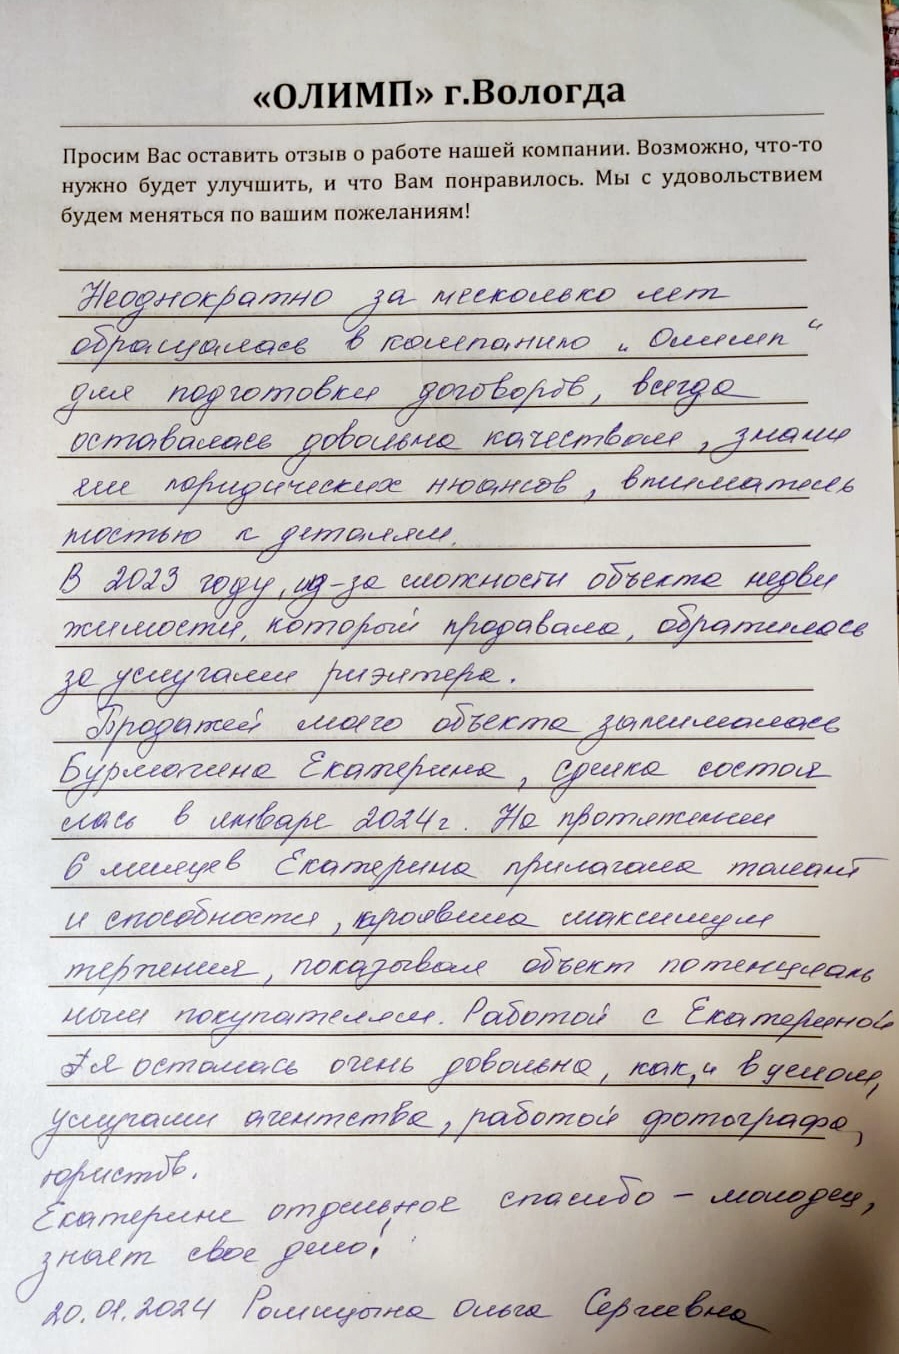 «ОЛИМП» г.Вологда
Просим Вас оставить отзыв о работе нашей компании. Возможно, что-то
нужно будет улучшить, и что Вам понравилось. Мы с удовольствием
будем меняться по вашим пожеланиям!
Неоднократно за несколько лет
обращалась в компанию „Олимп“
для подготовки договоров, всегда
оставалась довольна качеством, знани
ем юридических нюансов, вниматель
ностью к деталям.
В 2023 году, из-за сложности объекта недви
жимости, который продавала, обратилась
за услугами риэлтера.
Продажей моего объекта занималась
Бурмагина Екатерина, сделка состоя
лась в январе 2024г. На протяжении
6 месяцев Екатерина прилагала талант
и способности, проявила максимум
терпения, показывая объект потенциаль
ным покупателям. Работой с Екатериной
я осталась очень довольна, как, и в целом,
услугами агентства, работой фотографа,
юристов.
Екатерине отдельное спасибо – молодец,
знает свое дело!
20.01.2024 Ольга Сергеевна